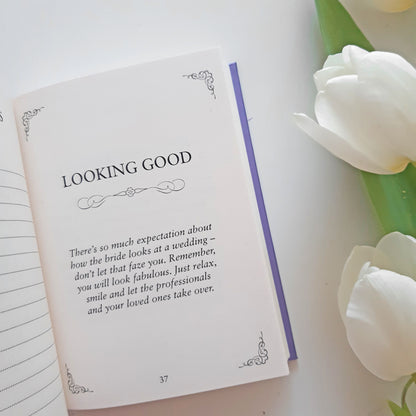 LOOKING GOOD
There's so much expectation about
how the bride looks at a wedding –
don't let that faze you. Remember,
you will look fabulous. Just relax,
smile and let the professionals
and your loved ones take over.
37